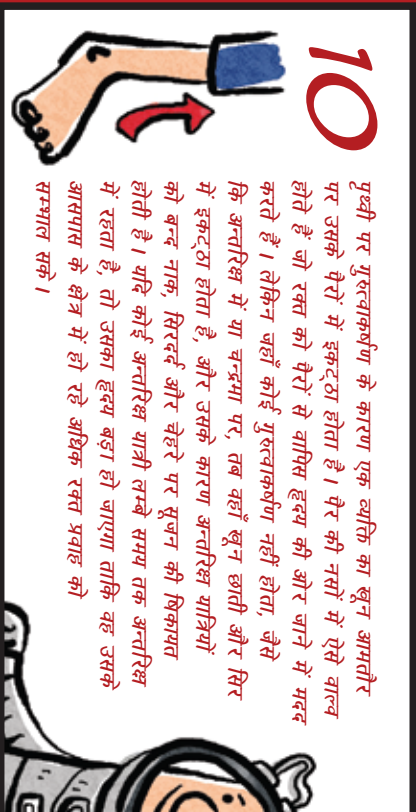 10
पृथ्वी पर गुरुत्वाकर्षण के कारण एक व्यक्ति का खून आमतौर
पर उसके पैरों में इकट्ठा होता है। पैर की नसों में ऐसे वाल्व
होते हैं जो रक्त को पैरों से वापिस हृदय की ओर जाने में मदद
करते हैं। लेकिन जहाँ कोई गुरुत्वाकर्षण नहीं होता, जैसे
कि अन्तरिक्ष में या चन्द्रमा पर, तब वहाँ खून छाती और सिर
में इकट्ठा होता है, और उसके कारण अन्तरिक्ष यात्रियों
को बन्द नाक, सिरदर्द और चेहरे पर सूजन की शिकायत
होती है। यदि कोई अन्तरिक्ष यात्री लम्बे समय तक अन्तरिक्ष
में रहता है, तो उसका हृदय बड़ा हो जाएगा ताकि वह उसके
आसपास के क्षेत्र में हो रहे अधिक रक्त प्रवाह को
सम्भाल सके।